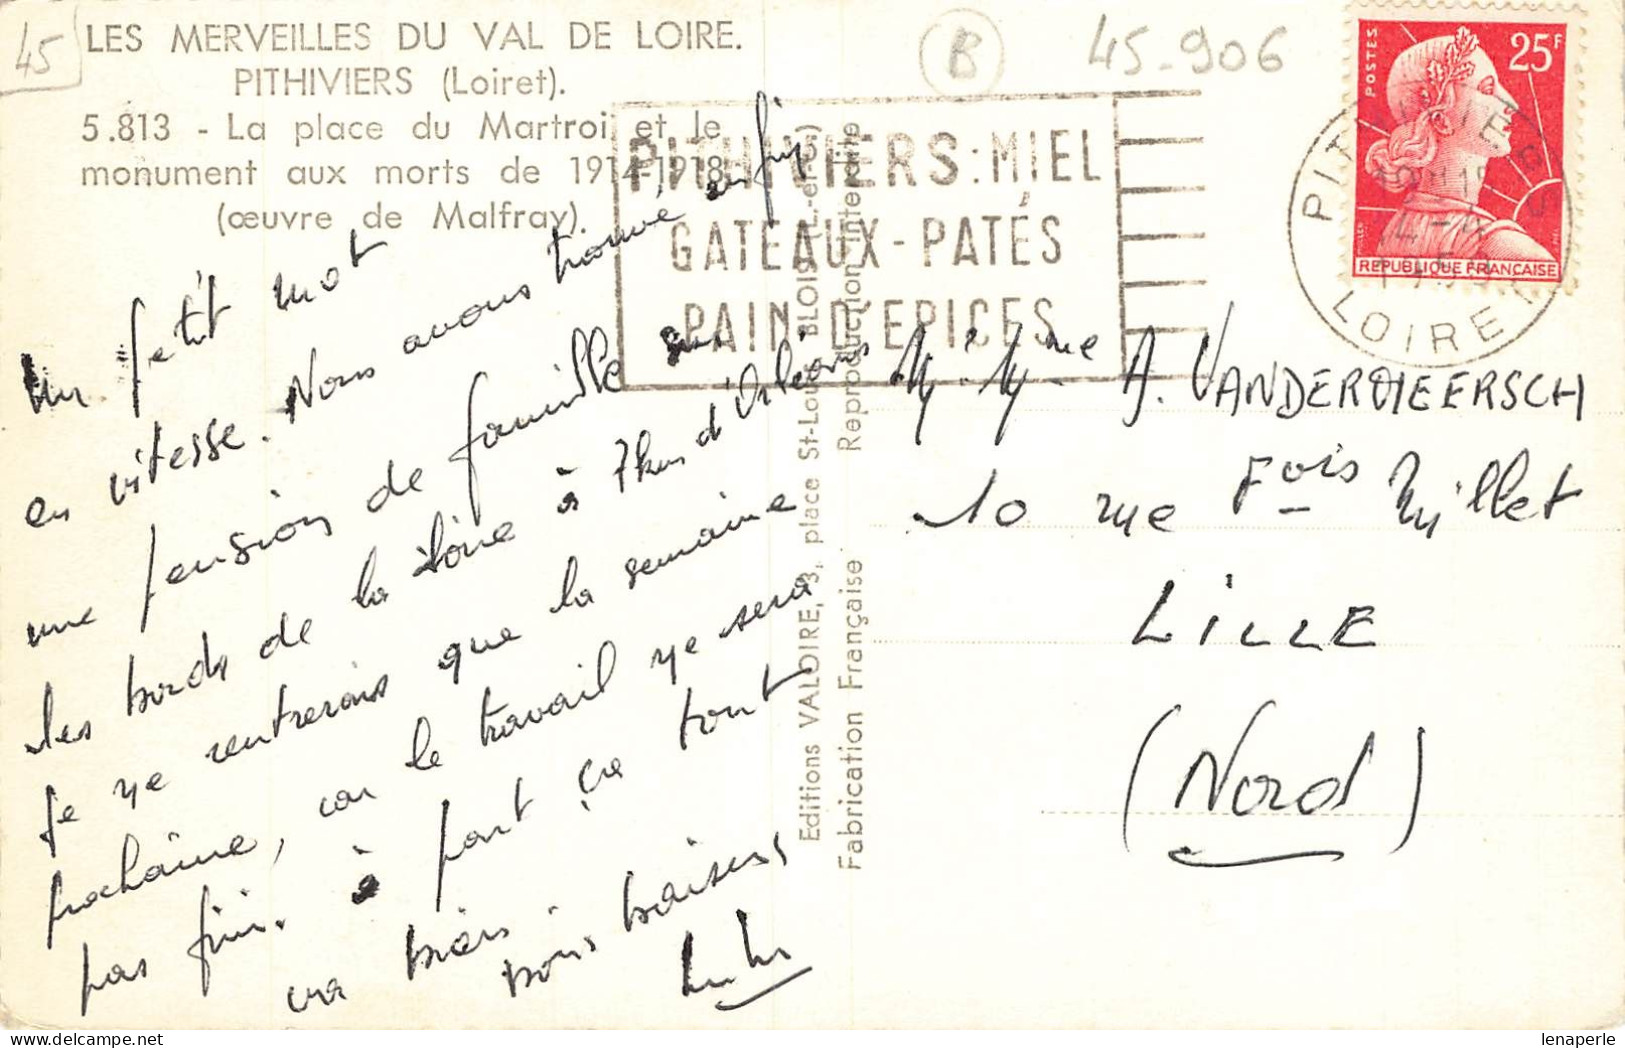 45
LES MERVEILLES DU VAL DE LOIRE.
PITHIVIERS (Loiret).
5.813 - La place du Martroi et le
monument aux morts de 1914-1918
(œuvre de Malfray).
B
45-906
PITHIVIERS: MIEL
GATEAUX - PATÉS
PAIN D'EPICES
POSTES
25F
REPUBLIQUE FRANÇAISE
PITHIVIERS
LOIRET
Un petit mot
en vitesse. Nous avons trouvé enfin
une pension de famille sur
les bords de la Loire à 7 km d'Orléans
Je ne rentrerais que la semaine
prochaine, car le travail ne sera
pas fini. à part ça tout
va bien
bons baisers
Lulu
Editions VALOIRE, 3, place St-Louis BLOIS (L.-et-Ch.)
Fabrication Française Reproduction interdite
M. Mme A. VANDERMEERSCH
10 rue Fois Millet
LILLE
(Nord)
lenaperle